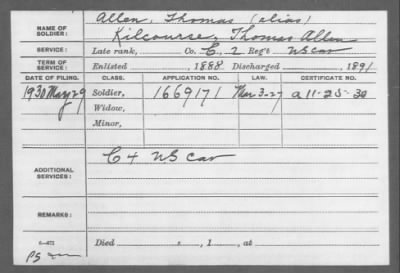 Allen, Thomas (alias)
NAME OF SOLDIER: Kilcourse, Thomas Allen
SERVICE: Late rank, Co. E, 2 Reg't US Cav
TERM OF SERVICE: Enlisted 1888 Discharged , 1891
DATE OF FILING. CLASS. APPLICATION NO. LAW. CERTIFICATE NO.
1930 May 29 Soldier, 1669171 Mar 3-27 a 11-25-30
Widow,
Minor,
ADDITIONAL SERVICES: C 4 US Cav
REMARKS:
Died , 1 , at